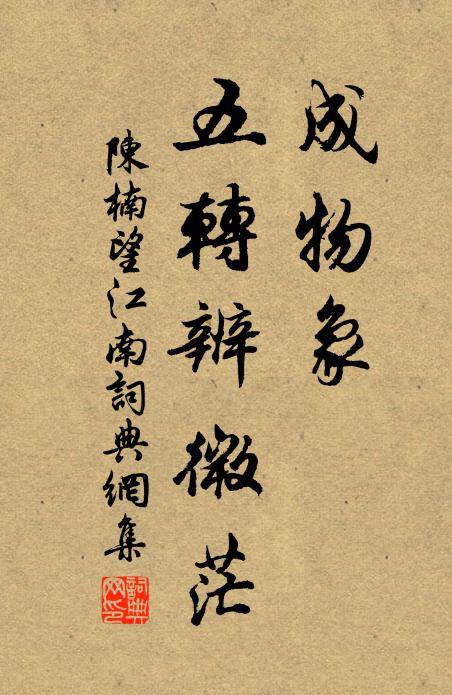 成物象
五轉辨微茫
陳楠望江南詞典網集
詞典網印